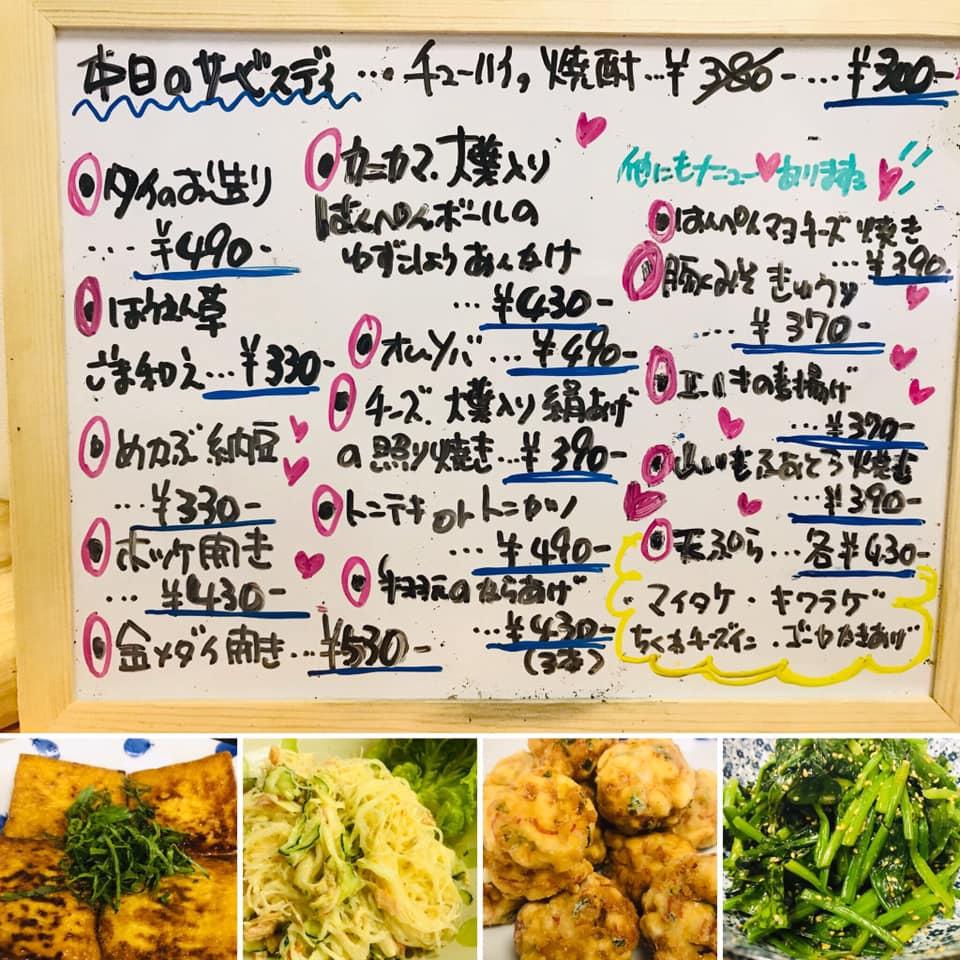 本日のサービスデイ … チューハイ, 焼酎…¥380-…¥300-
タイのお造り
…. ¥490-
ほうれん草
ごま和え…¥330-
めかぶ納豆
… ¥330-
ホッケ開き
… ¥430-
金メダイ開き…¥530-
カニカマ、大葉入り
はんぺんボールの
ゆずこしょうあんかけ
… ¥430-
オムソバ… ¥490-
チーズ、大葉入り絹あげ
の照り焼き…¥390-
トンテキ or トンカツ
… ¥490-
手羽元のからあげ
…¥430-
(3本)
他にもメニューおります
はんぺんマヨチーズ焼き
…¥390.
豚みそきゅうり
… ¥370-
エイヒの素揚げ
…¥370-
山いもふあとろ焼き
…¥390-
天ぷら…各¥430-
・マイタケ・キクラゲ
ちくわチーズイン・ゴーヤかきあげ